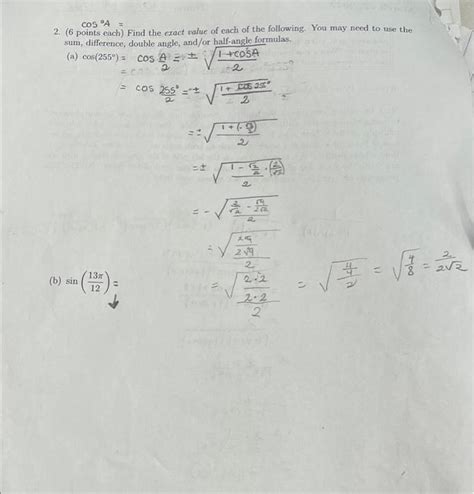 cos °A =
2. (6 points each) Find the exact value of each of the following. You may need to use the
sum, difference, double angle, and/or half-angle formulas.
(a) cos(255°) = cos A/2 = ± √((1+cosA)/2)
= cos 255°/2 = ± √((1+cos 25°)/2) =
= ± √((1+(-√2/2))/2)
= ± √((1 - √2/2 · (2/√2))/2)
= - √((2/√2 - √4/2√2)/2)
= √((2√4/2√4)/2)
(b) sin (13π/12) = = √((2·2/2·2)/2) = √((4/4)/2) = √(4/8) = 2/2√2